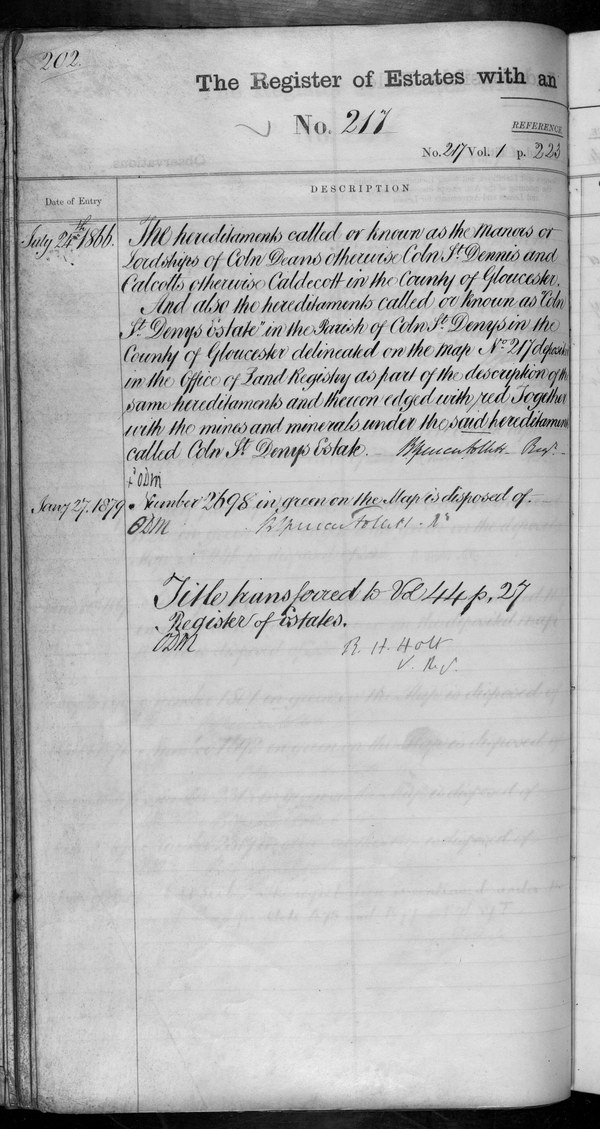 202.
The Register of Estates with an
No. 217
REFERENCE
No. 217 Vol. 1 p. 223
Date of Entry
DESCRIPTION
July 24th 1866.
The hereditaments called or known as the Manors or
Lordships of Coln Deans otherwise Coln St. Dennis and
Calcotts otherwise Caldecott in the County of Gloucester.
And also the hereditaments called or known as "Coln
St. Denys Estate" in the Parish of Coln St. Denys in the
County of Gloucester delineated on the Map No. 217 deposited
in the Office of Land Registry as part of the description of the
same hereditaments and thereon edged with red Together
with the mines and minerals under the said hereditaments
called Coln St. Denys Estate. Brent Spencer Follett Regr.
ODM
Jany 27. 1879
Number 2698 in green on the Map is disposed of.
ODM
Title transferred to Vol 44 p. 27
Register of Estates.
ODM
R. H. Holt